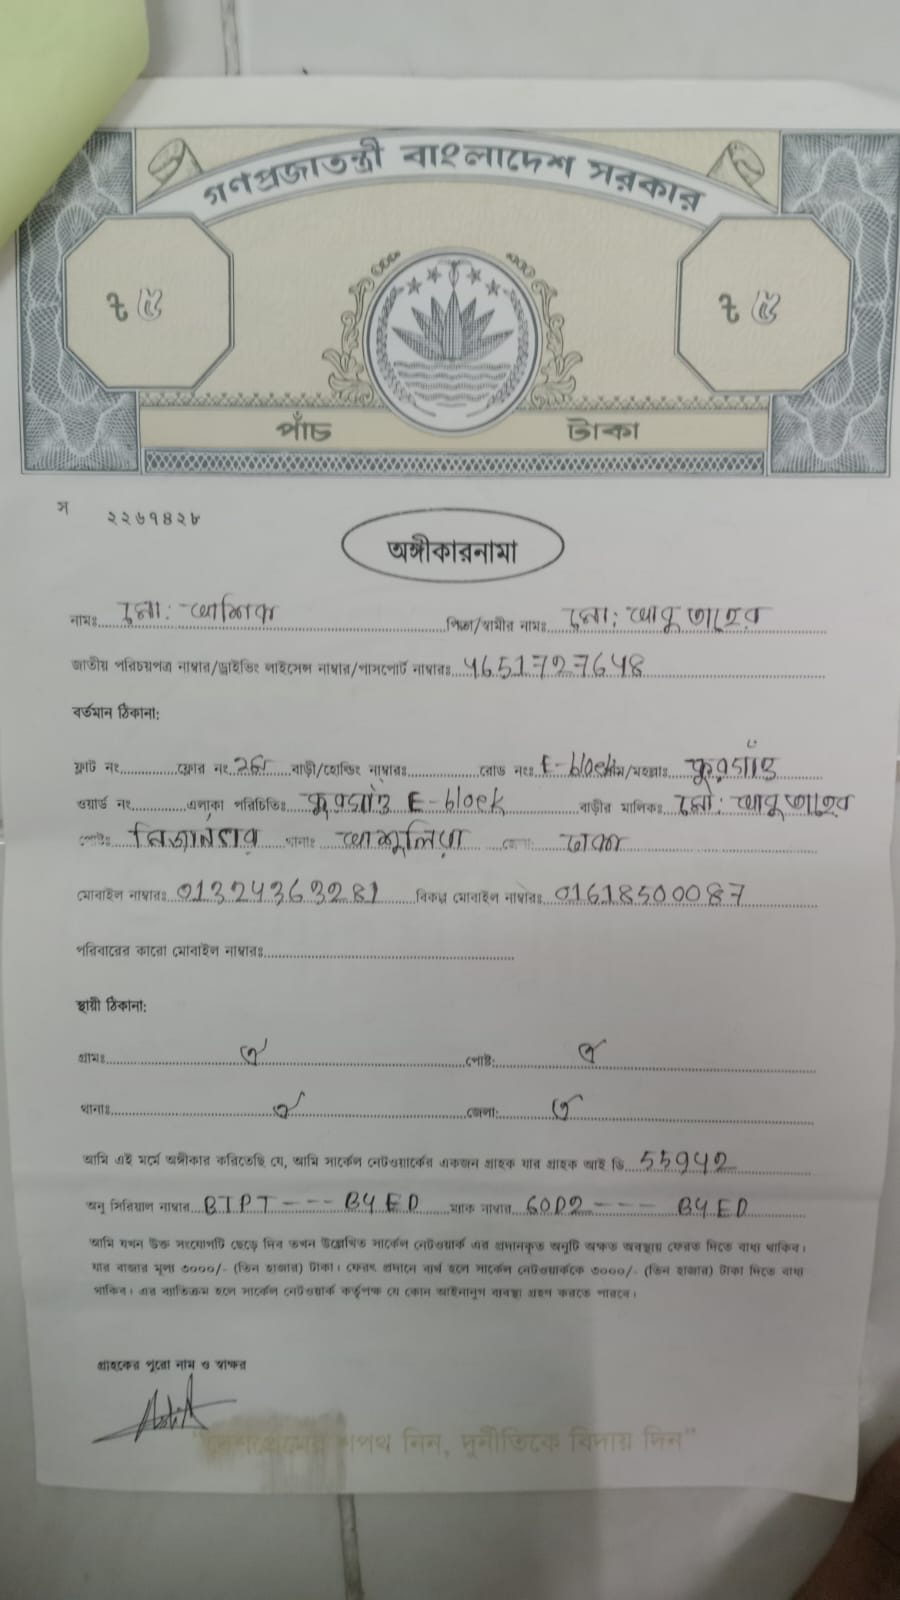 গণপ্রজাতন্ত্রী বাংলাদেশ সরকার
৳ ৫ ৳ ৫
পাঁচ টাকা
স ২২৬৭৪২৮
অঙ্গীকারনামা
নামঃ মো: আশিক পিতা/স্বামীর নামঃ মো: আবু তাহের
জাতীয় পরিচয়পত্র নাম্বার/ড্রাইভিং লাইসেন্স নাম্বার/পাসপোর্ট নাম্বারঃ 4651727648
বর্তমান ঠিকানা:
ফ্লাট নং ফ্লোর নং বাড়ী/হোল্ডিং নাম্বারঃ রোড নংঃ E-block গ্রাম/মহল্লাঃ
ওয়ার্ড নং এলাকা পরিচিতিঃ E-block বাড়ীর মালিকঃ মো: আবু তাহের
পোষ্টঃ থানাঃ আশুলিয়া জেলা: ঢাকা
মোবাইল নাম্বারঃ 01324363281 বিকল্প মোবাইল নাম্বারঃ 01618500087
পরিবারের কারো মোবাইল নাম্বারঃ
স্থায়ী ঠিকানা:
গ্রামঃ ঐ পোষ্ট: ঐ
থানাঃ ঐ জেলা: ঐ
আমি এই মর্মে অঙ্গীকার করিতেছি যে, আমি সার্কেল নেটওয়ার্কের একজন গ্রাহক যার গ্রাহক আই ডি 55942
অনু সিরিয়াল নাম্বার BTPT --- B4ED ম্যাক নাম্বার 60D2 --- B4ED
আমি যখন উক্ত সংযোগটি ছেড়ে দিব তখন উল্লেখিত সার্কেল নেটওয়ার্ক এর প্রদানকৃত অনুটি অক্ষত অবস্থায় ফেরত দিতে বাধ্য থাকিব।
যার বাজার মূল্য ৩০০০/- (তিন হাজার) টাকা। ফেরৎ প্রদানে ব্যর্থ হলে সার্কেল নেটওয়ার্ককে ৩০০০/- (তিন হাজার) টাকা দিতে বাধ্য
থাকিব। এর ব্যতিক্রম হলে সার্কেল নেটওয়ার্ক কর্তৃপক্ষ যে কোন আইনানুগ ব্যবস্থা গ্রহণ করতে পারবে।
গ্রাহকের পুরো নাম ও স্বাক্ষর
"দেশপ্রেমের শপথ নিন, দুর্নীতিকে বিদায় দিন"